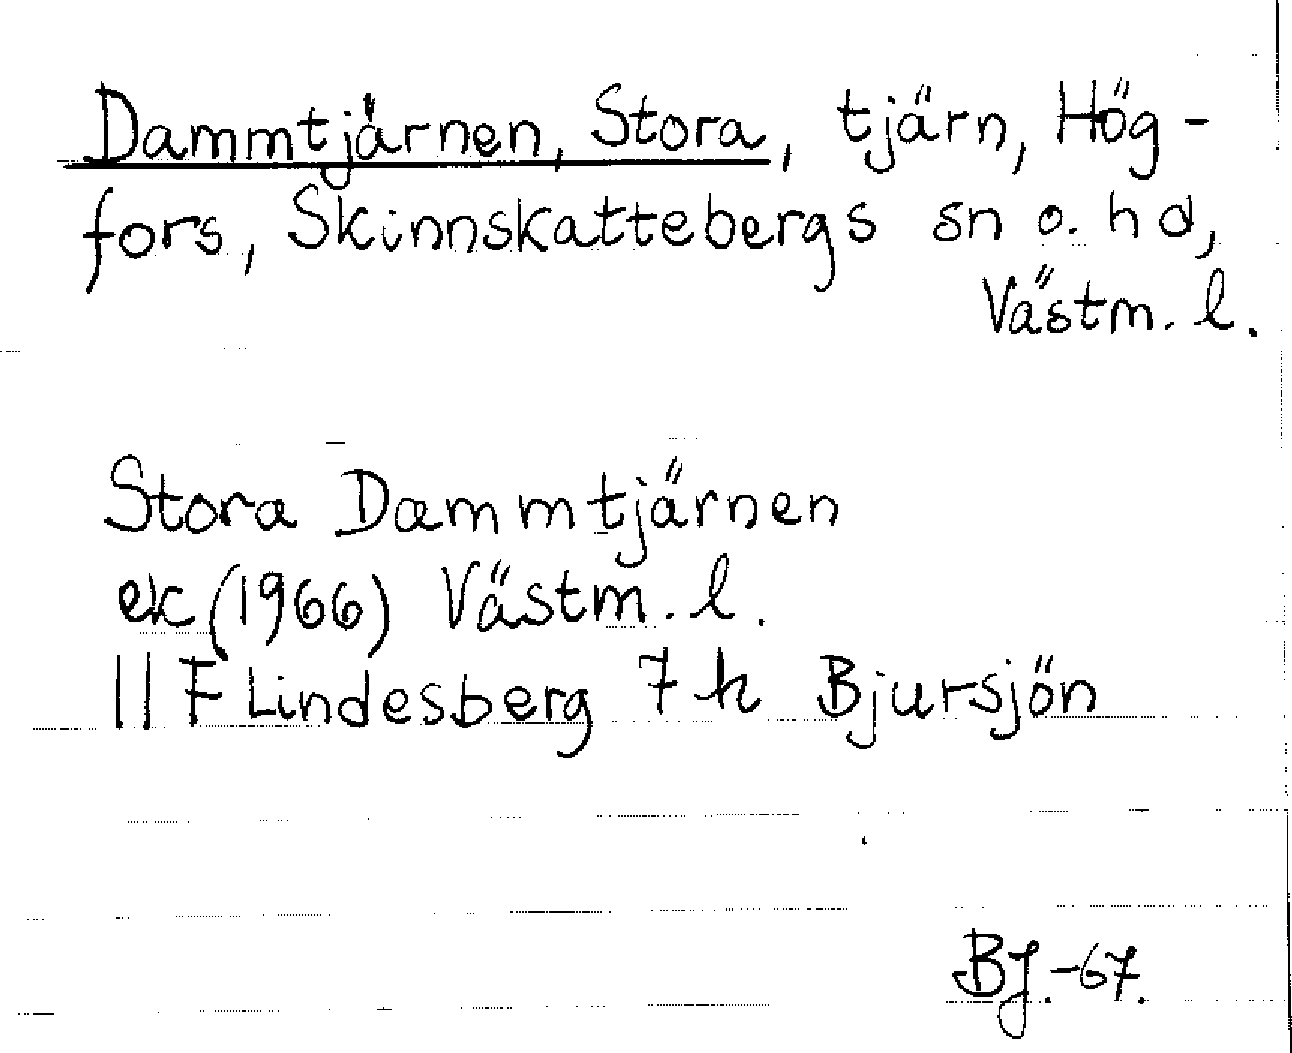 Dammtjärnen, Stora, tjärn, Hög-
fors, Skinnskattebergs sn o. hd,
Västm. l.
Stora Dammtjärnen
ek (1966) Västm. l.
11 F Lindesberg 7 h Bjursjön
BJ.-67.